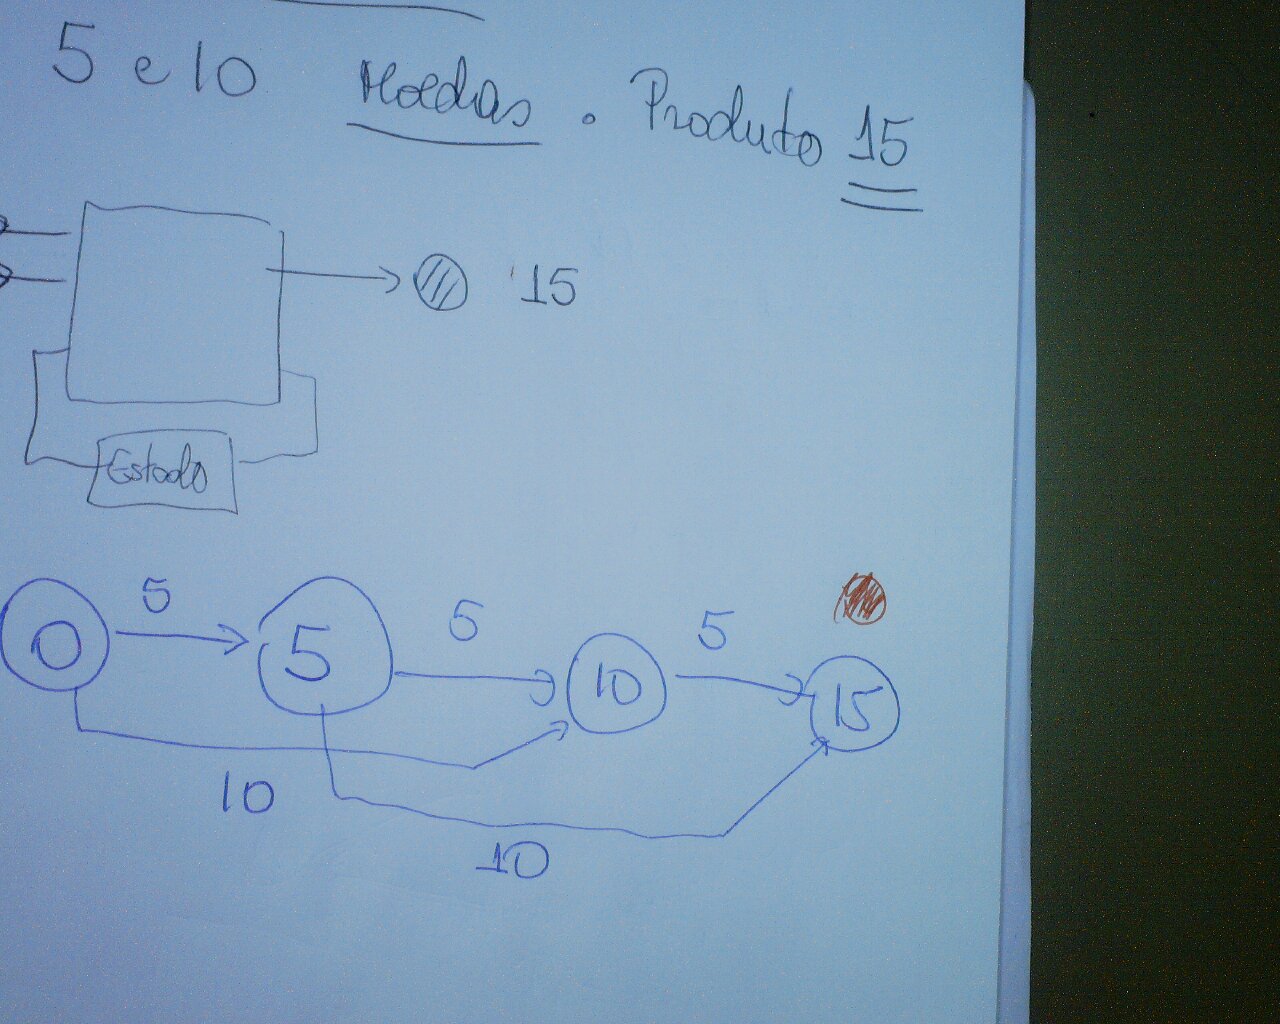 5 e 10 Moedas . Produto 15
15
Estado
5 5 5
0 5 10 15
10
10